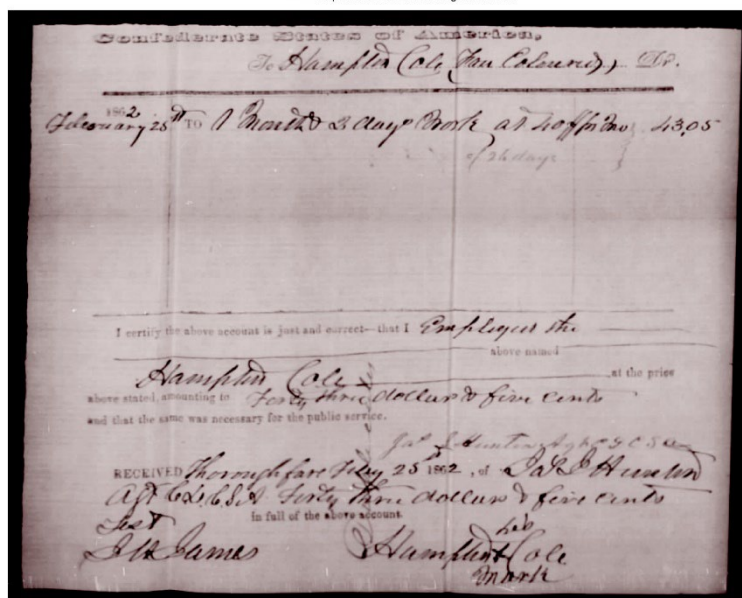 Confederate States of America,
To Hampton Cole (Free Coloured), Dr.
1862
February 25th TO 1 Month & 2 days Work at 40 pr Mo 43.05
of 26 days
I certify the above account is just and correct—that I Employed the
above named
Hampton Cole at the price
above stated, amounting to Forty three dollars & five cents
and that the same was necessary for the public service.
Hunton Agt C S A
RECEIVED Thoroughfare Feby 25th 1862, of Hunton
Agt C.S.A. Forty three dollars & five cents
in full of the above account.
Test his
James Hampton + Cole
mark